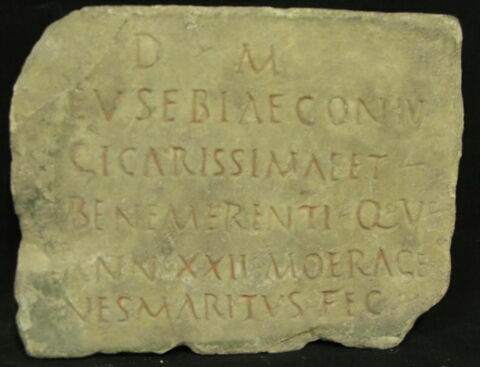 D M
EVSEBIAE CONIV
GI CARISSIMAE ET
BENEMERENTI QV
ANN XXII MOERAGE
NES MARITVS FEC